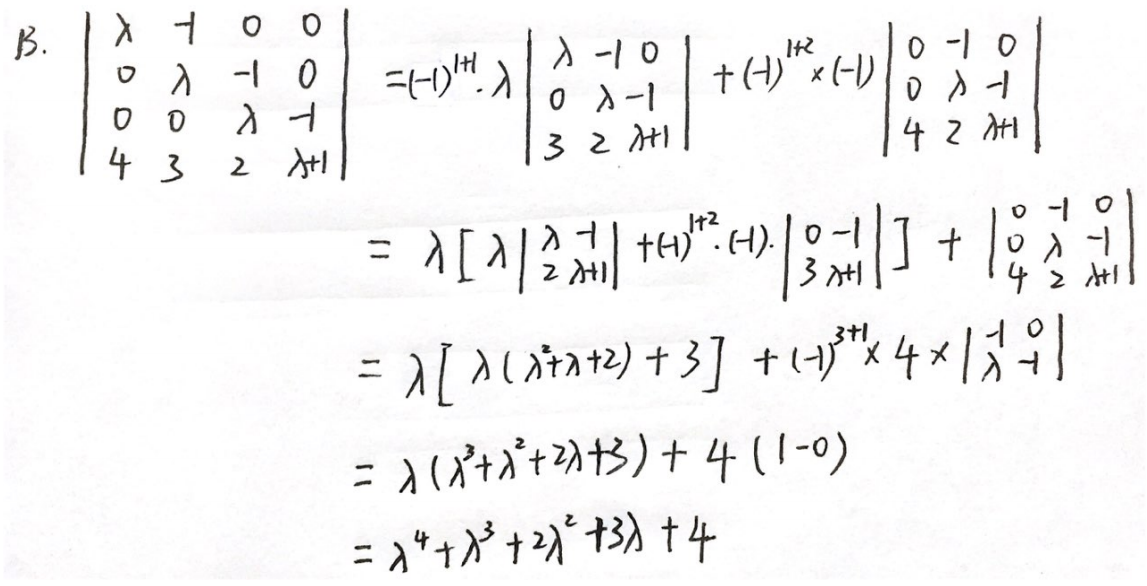 13. $\begin{vmatrix} \lambda & -1 & 0 & 0 \\ 0 & \lambda & -1 & 0 \\ 0 & 0 & \lambda & -1 \\ 4 & 3 & 2 & \lambda+1 \end{vmatrix} = (-1)^{1+1} \cdot \lambda \begin{vmatrix} \lambda & -1 & 0 \\ 0 & \lambda & -1 \\ 3 & 2 & \lambda+1 \end{vmatrix} + (-1)^{1+2} \times (-1) \begin{vmatrix} 0 & -1 & 0 \\ 0 & \lambda & -1 \\ 4 & 2 & \lambda+1 \end{vmatrix}$
$= \lambda [ \lambda \begin{vmatrix} \lambda & -1 \\ 2 & \lambda+1 \end{vmatrix} + (-1)^{1+2} \cdot (-1) \cdot \begin{vmatrix} 0 & -1 \\ 3 & \lambda+1 \end{vmatrix} ] + \begin{vmatrix} 0 & -1 & 0 \\ 0 & \lambda & -1 \\ 4 & 2 & \lambda+1 \end{vmatrix}$
$= \lambda [ \lambda (\lambda^2+\lambda+2) + 3 ] + (-1)^{3+1} \times 4 \times \begin{vmatrix} -1 & 0 \\ \lambda & -1 \end{vmatrix}$
$= \lambda (\lambda^3+\lambda^2+2\lambda+3) + 4 (1-0)$
$= \lambda^4+\lambda^3+2\lambda^2+3\lambda+4$